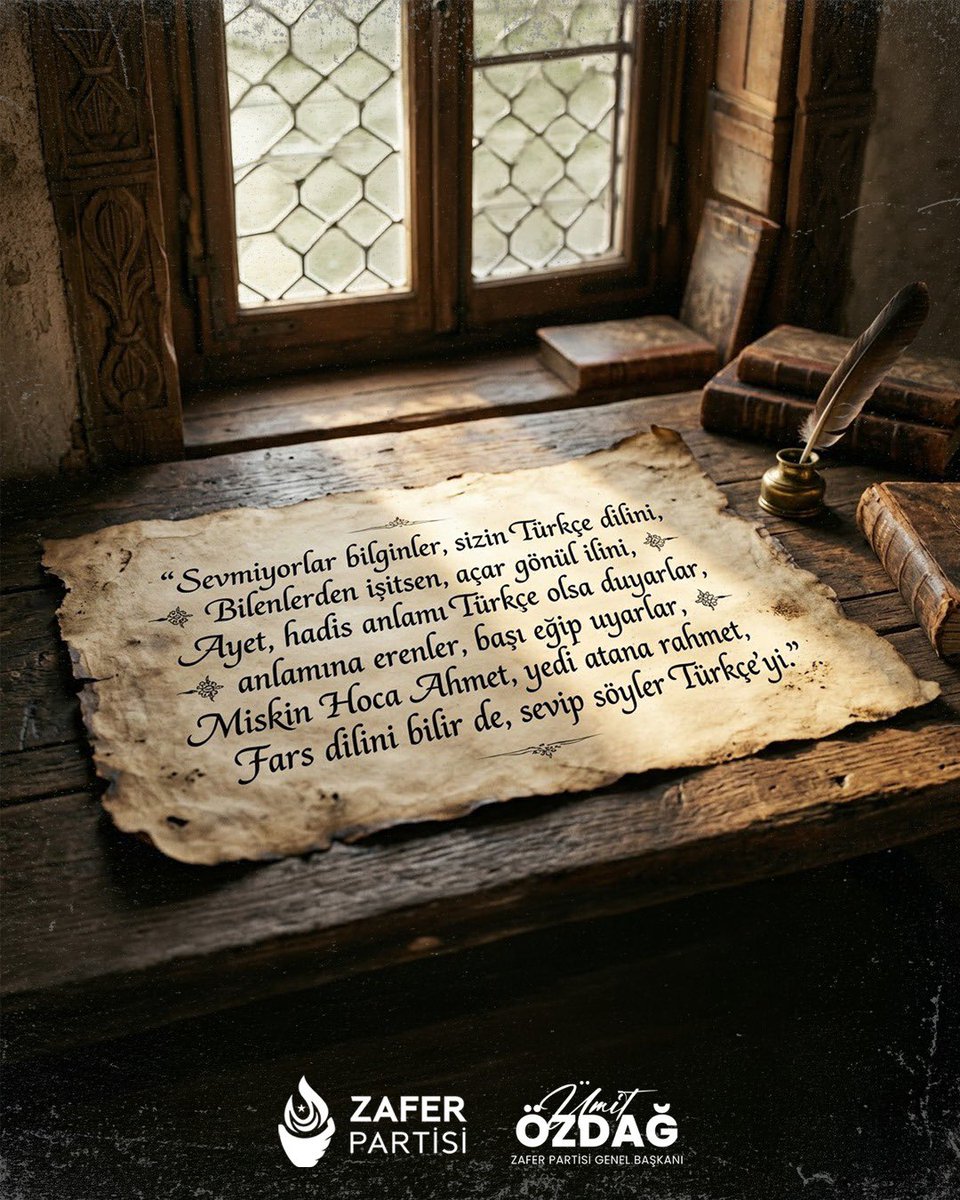 “Sevmiyorlar bilginler, sizin Türkçe dilini,
Bilenlerden işitsen, açar gönül ilini,
Ayet, hadis anlamı Türkçe olsa duyarlar,
anlamına erenler, başı eğip uyarlar,
Miskin Hoca Ahmet, yedi atana rahmet,
Fars dilini bilir de, sevip söyler Türkçe’yi.”
ZAFER
PARTİSİ
Ümit
ÖZDAĞ
ZAFER PARTİSİ GENEL BAŞKANI